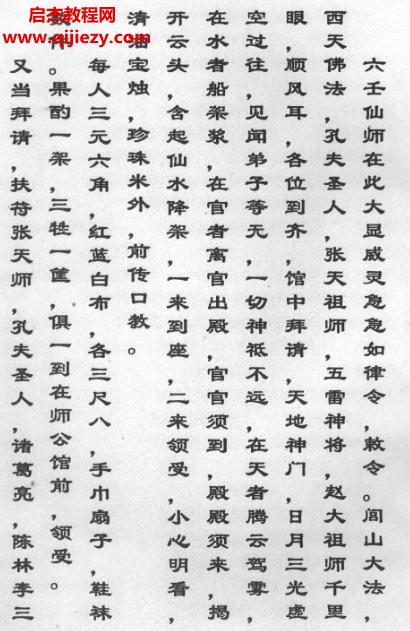 启杰教程网
www.qijiezy.com
六壬仙师在此大显威灵急急如律令，敕令。闾山大法，
西天佛法，孔夫圣人，张天祖师，五雷神将，赵大祖师千里
眼，顺风耳，各位到齐，馆中拜请，天地神门，日月三光虚
空过往，见闻弟子等无，一切神祗不远，在天者腾云驾雾，
在水者船架浆，在官者离官出殿，官官须到，殿殿须来，揭
开云头，含起仙水降架，一来到座，二来领受，小心明看，
清油宝烛，珍珠米外，前传口教。
每人三元六角，红蓝白布，各三尺八，手巾扇子，鞋袜
件。果酌一架，三牲一筐，俱一到在师公馆前，领受。
又当拜请，扶符张天师，孔夫圣人，诸葛亮，陈林李三